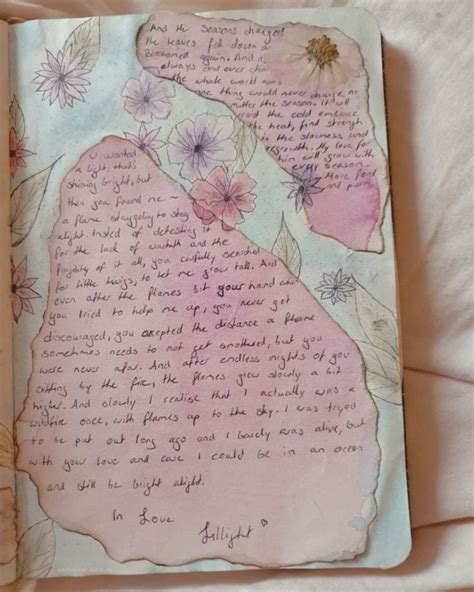 And the Seasons changed
the leaves fell down &
Bloomed again. And a
always and ever cha
the whole world was
one thing would never change, no
matter the season. It will
resist the cold embrace
the heat, find strength
in the slowness and
regrowth. My love for
him will grow with
every season.
More fond
and pure.
U wanted
a light, that's
shining bright, but
then you found me ~
a flame stuggeling to stay
alight. Insted of detesting it
for the lack of warmth and the
fragility of it all, you carfully searched
for little twigs, to let me grow tall. And
even after the flames bit your hand when
you tried to help me up, you never got
discouraged, you acepted the distance a flame
sometimes needs to not get smothered, but you
were never afar. And after endless nights of you
sitting by the fire, the flames grew slowly a bit
higher. And slowly I realise that I actually was a
wildfire once, with flames up to the sky. I was tryed
to be put out long ago and I barely was alive, but
with your love and care I could be in an ocean
and still be bright alight.
In Love
Lillight